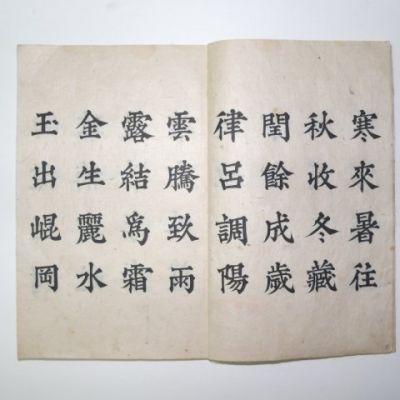 寒來暑往
秋收冬藏
閏餘成歲
律呂調陽
雲騰致雨
露結為霜
金生麗水
玉出崐岡